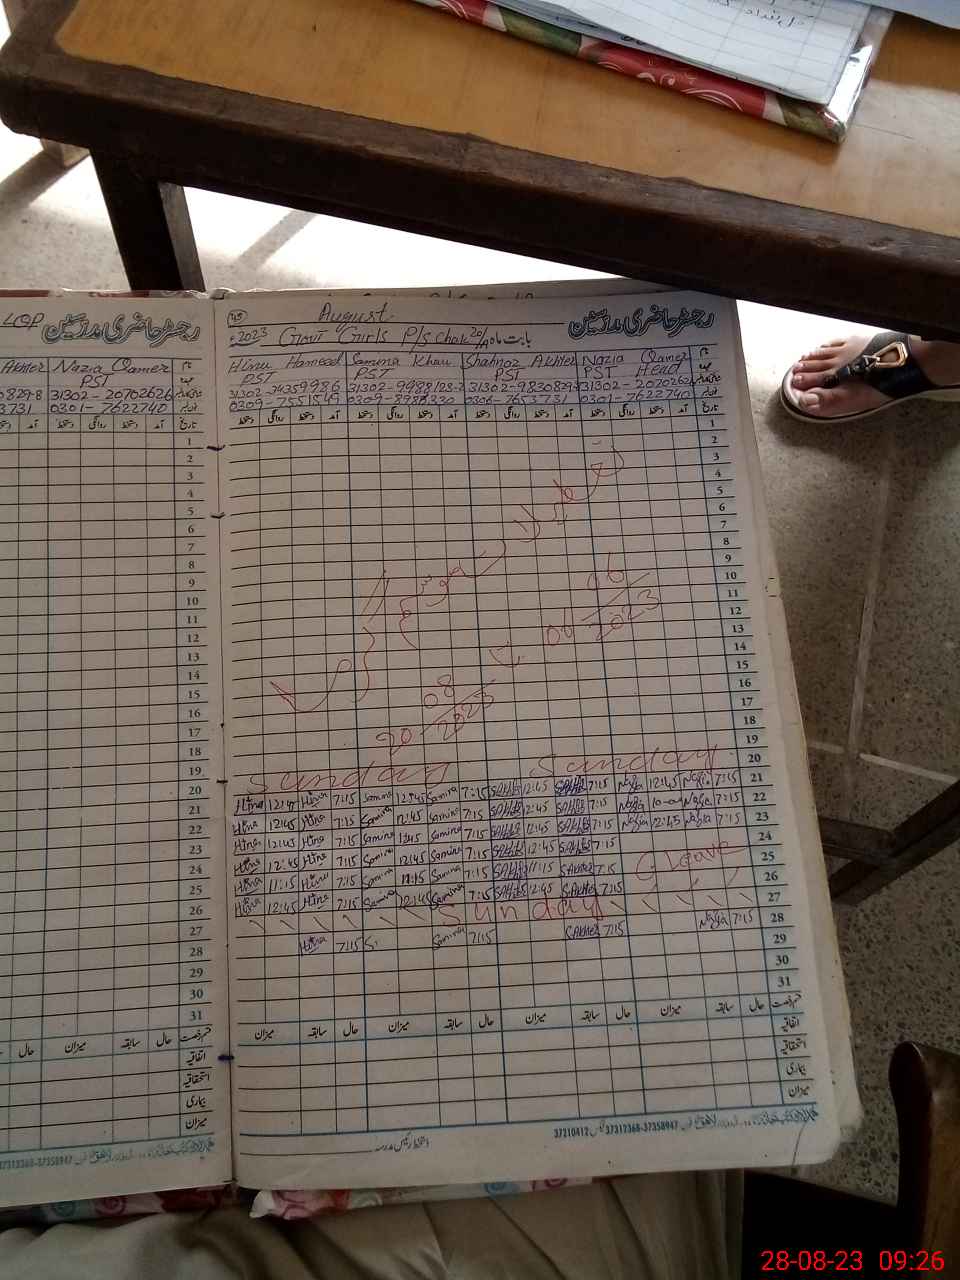 رجسٹر حاضری مدرسین
Akhter Nazia Qamer
PST
0829-8 31302-20702626
3731 0301-7622740
1
2
3
4
5
6
7
8
9
10
11
12
13
14
15
16
17
18
19
20
21
22
23
24
25
26
27
28
29
30
31
حال سابقہ میزان حال
اتفاقیہ
استحقاقیہ
بیماری
میزان
37312368-37358947
45 August رجسٹر حاضری مدرسین
2023 Govt Girls P/s Chak 20/ بابت ماہ
Hina Hameed Samina Khan Shahnaz Akhter Nazia Qamer نام
PST PST PST PST Head
31302-9830829-8 31302-20702626
0309-7551549 0309-8988330 0306-7653731 0301-7622740
تاریخ آمد دستخط روانگی دستخط آمد دستخط روانگی دستخط آمد دستخط روانگی دستخط آمد دستخط روانگی دستخط
1
2
3
4
5
6
7
8
9
10
11
12
13
14
15
16
17
18
19
تعطیلات موسم گرما
06-06-2023 تا
20-08-2023
Sunday Sunday 20
Hina 12:45 Hina 7:15 Samina 12:45 Samina 7:15 SAkhter 12:45 SAkhter 7:15 Nazia 12:45 Nazia 7:15 21
Hina 12:45 Hina 7:15 Samina 12:45 Samina 7:15 SAkhter 12:45 SAkhter 7:15 Nazia Nazia 7:15 22
Hina 12:45 Hina 7:15 Samina 12:45 Samina 7:15 SAkhter 12:45 SAkhter 7:15 Nazia 12:45 Nazia 7:15 23
Hina 12:45 Hina 7:15 Samina 12:45 Samina 7:15 SAkhter 12:45 SAkhter 7:15 24
Hina 11:15 Hina 7:15 Samina 11:15 Samina 7:15 SAkhter 11:15 SAkhter 7:15 C Leave 25
Hina 12:45 Hina 7:15 Samina 12:45 Samina 7:15 SAkhter 12:45 SAkhter 7:15 26
Sunday 27
Hina 7:15 Samina 7:15 SAkhter 7:15 Nazia 7:15 28
29
30
31
قسم رخصت حال سابقہ میزان حال سابقہ میزان حال سابقہ میزان حال سابقہ میزان
اتفاقیہ
استحقاقیہ
بیماری
میزان
37312368-37358947 37210412
دستخط رئیس مدرسہ
28-08-23 09:26